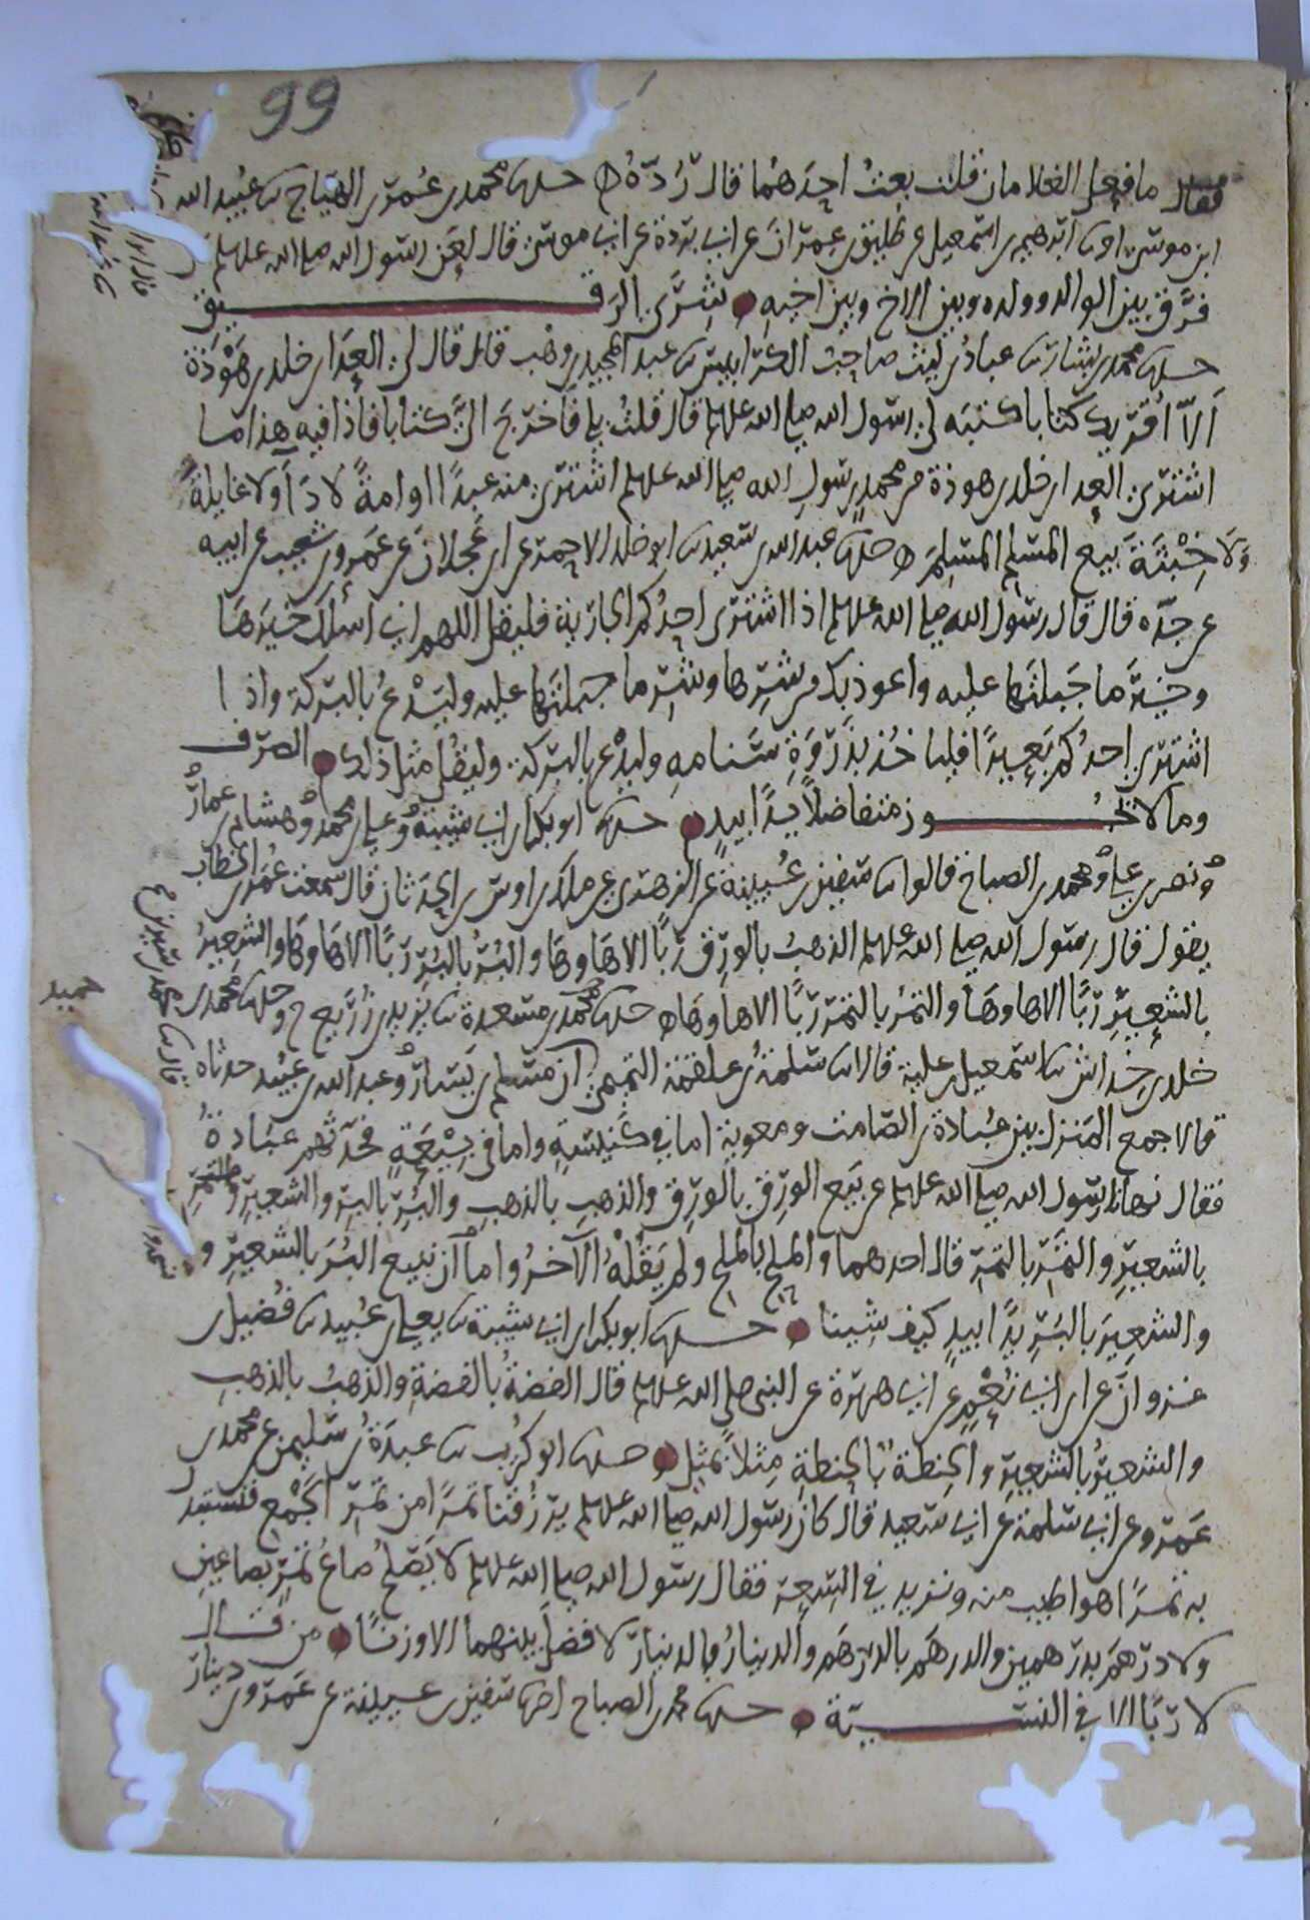 99
فقال ما فعل الغلامان قلت بعث احدهما قال رده ه حدثنا محمد بن عمر بن الهياج ثنا عبيد الله
ابن موسى انا ابراهيم بن اسمعيل عن طليق بن عمران عن ابي بردة عن ابي موسى قال لعن رسول الله صلى الله عليه وسلم من
فرق بين الوالد وولده وبين الاخ وبين اخيه شرى الرقيق
حدثنا محمد بن بشار ثنا عباد بن ليث صاحب الكرابيس ثنا عبد المجيد بن وهب قال قال لي العدا بن خلد بن هوذة
الا اقريك كتابا كتبه لي رسول الله صلى الله عليه وسلم قال قلت بلى فاخرج الي كتابا فاذا فيه هذا ما
اشترى العدا بن خلد بن هوذة من محمد رسول الله صلى الله عليه وسلم اشترى منه عبدا او امة لا دآ ولا غايلة
ولا خبثة بيع المسلم المسلم ه حدثنا عبد الله بن سعيد ثنا ابو خلد الاحمر عن ابن عجلان عن عمرو بن شعيب عن ابيه
عن جده قال قال رسول الله صلى الله عليه وسلم اذا اشترى احدكم الجارية فليقل اللهم اني اسلك خيرها
وخير ما جبلتها عليه واعوذ بك من شرها وشر ما جبلتها عليه وليدع بالبركة واذا
اشترى احدكم بعيرا فلياخذ بذروة سنامه وليدع بالبركة وليقل مثل ذلك الصرف
وما لا يجوز متفاضلا يدا بيد حدثنا ابو بكر بن ابي شيبة وعلي بن محمد وهشام بن عمار
ونصر بن علي ومحمد بن الصباح قالوا ثنا سفين بن عيينة عن الزهري عن ملك بن اوس بن الحدثان قال سمعت عمر بن الخطاب
يقول قال رسول الله صلى الله عليه وسلم الذهب بالورق ربا الا ها وها والبر بالبر ربا الا ها وها والشعير
بالشعير ربا الا ها وها والتمر بالتمر ربا الا ها وها ه حدثنا حميد بن مسعدة ثنا يزيد بن زريع ح وحدثنا محمد بن
خلد بن خداش ثنا اسمعيل بن علية قالا ثنا سلمة بن علقمة التميمي ان مسلم بن يسار وعبد الله بن عبيد حدثاه
قالا جمع المنزل بين عبادة بن الصامت ومعوية اما في كنيسة واما في بيعة فحدثهم عبادة
فقال نهانا رسول الله صلى الله عليه وسلم عن بيع الورق بالورق والذهب بالذهب والبر بالبر والشعير
بالشعير والتمر بالتمر قال احدهما والملح بالملح ولم يقله الآخر وامرنا ان نبيع البر بالشعير و
والشعير بالبر يدا بيد كيف شينا حدثنا ابو بكر بن ابي شيبة ثنا يعلى بن عبيد ثنا فضيل بن
غزوان عن ابن ابي نعم عن ابي هريرة عن النبي صلى الله عليه وسلم قال الفضة بالفضة والذهب بالذهب
والشعير بالشعير والحنطة بالحنطة مثلا بمثل حدثنا ابو كريب ثنا عبدة بن سليمن عن محمد بن
عمرو عن ابي سلمة عن ابي سعيد قال كان رسول الله صلى الله عليه وسلم يرزقنا تمرا من تمر الجمع فنستبدل
به تمرا هو اطيب منه ونزيد في السعر فقال رسول الله صلى الله عليه وسلم لا يصلح صاع تمر بصاعين
ولا درهم بدرهمين والدرهم بالدرهم والدينار بالدينار لا فضل بينهما الا وزنا من قال
لا ربا الا في النسية حدثنا محمد بن الصباح انا سفين بن عيينة عن عمرو بن دينار
حميد